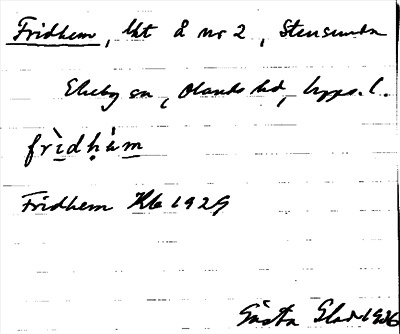 Fridhem, lht å nr 2, Stensunda
Ekeby sn, Olands hd, Upps. l.
frìdhàm
Fridhem Kb 1929
Gösta 1936